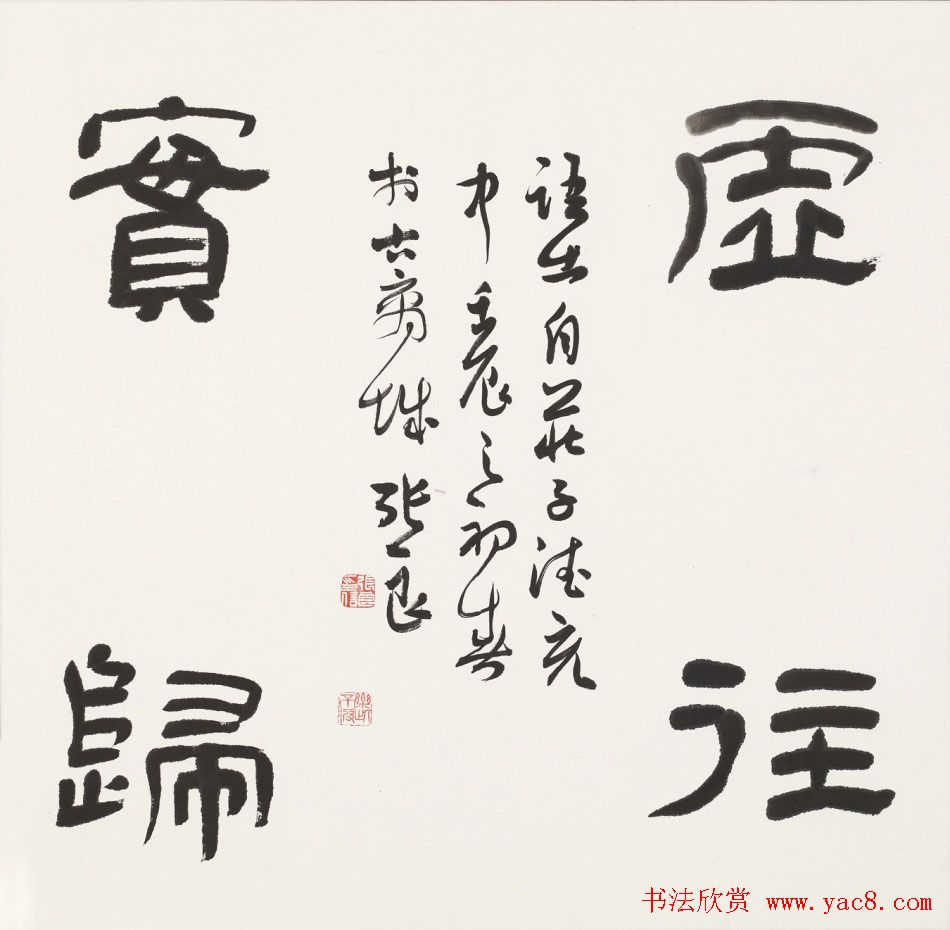 虛往
語出自莊子德充
中壬辰之初春
於古商城張良
實歸
书法欣赏 www.yac8.com